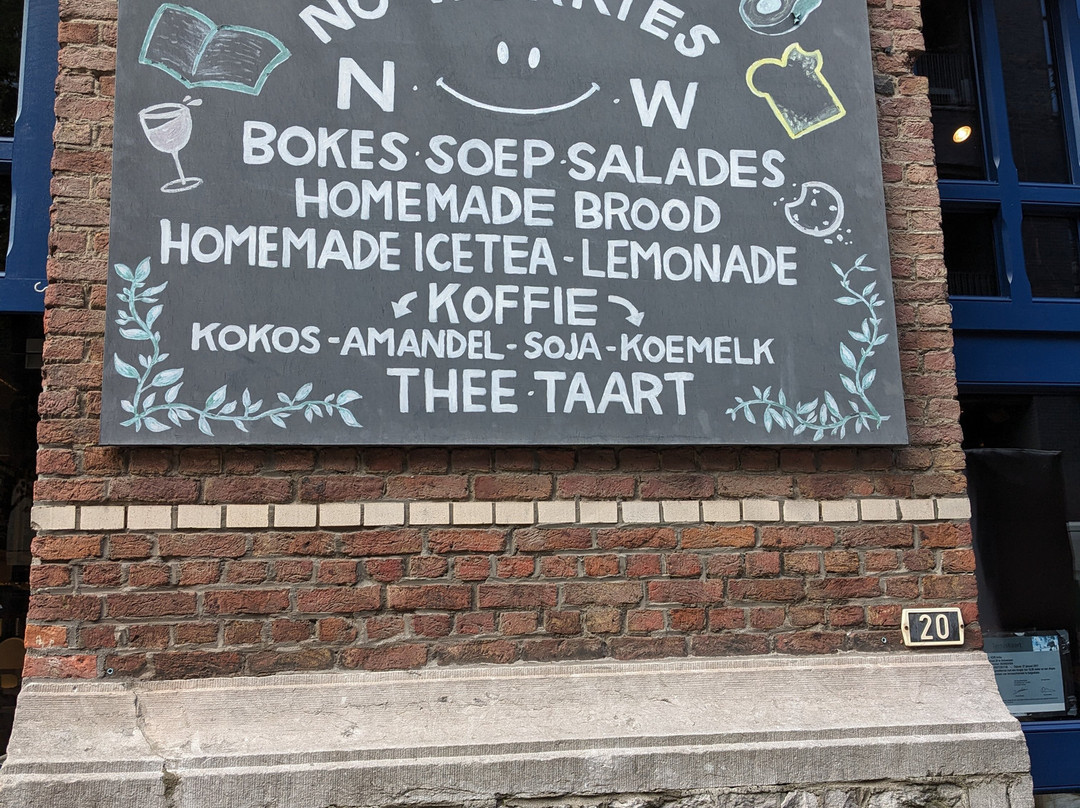 NO WORRIES
N · W
BOKES · SOEP · SALADES
HOMEMADE BROOD
HOMEMADE ICETEA - LEMONADE
KOFFIE
KOKOS - AMANDEL - SOJA - KOEMELK
THEE · TAART
20